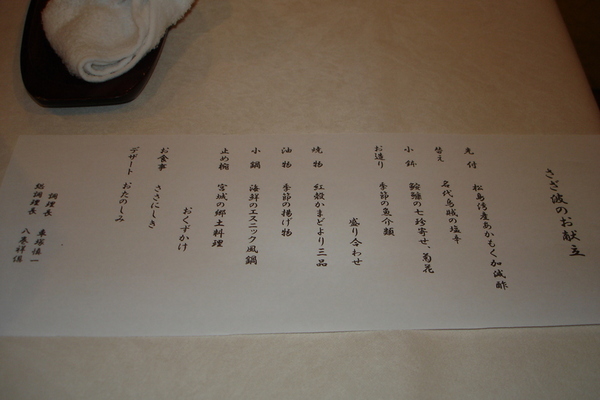 さざ波のお献立
先付 松島湾産あかもく加減酢
替え 名代烏賊の塩辛
小鉢 鮟鱇の七珍寄せ、菊花
お造り 季節の魚介類
盛り合わせ
焼物 紅殻かまどより三品
油物 季節の揚げ物
小鍋 海鮮のエスニック風鍋
止め椀 宮城の郷土料理
おくずかけ
お食事 ささにしき
デザート おたのしみ
調理長 慎一
総調理長 八巻祥